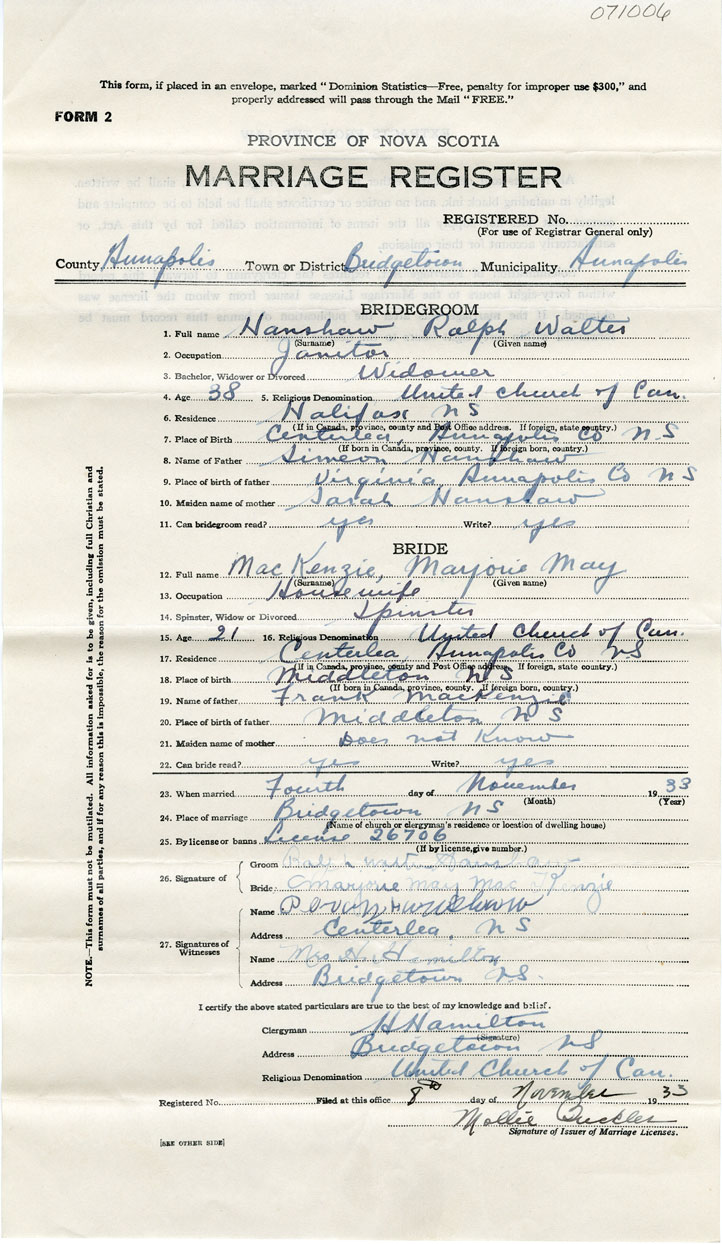 071006
This form, if placed in an envelope, marked "Dominion Statistics—Free, penalty for improper use $300," and
properly addressed will pass through the Mail "FREE."
FORM 2
PROVINCE OF NOVA SCOTIA
MARRIAGE REGISTER
REGISTERED No.
(For use of Registrar General only)
County Annapolis Town or District Bridgetown Municipality Annapolis
BRIDEGROOM
1. Full name Hanshaw Ralph Walter
(Surname) (Given name)
2. Occupation Janitor
3. Bachelor, Widower or Divorced Widower
4. Age 38 5. Religious Denomination United Church of Can.
6. Residence Halifax NS
(If in Canada, province, county and Post Office address. If foreign, state country.)
7. Place of Birth Centerlea, Annapolis Co N.S
(If born in Canada, province, county. If foreign born, country.)
8. Name of Father Simeon Hanshaw
9. Place of birth of father Virginia, Annapolis Co N S
10. Maiden name of mother Sarah Hanshaw
11. Can bridegroom read? yes Write? yes
BRIDE
12. Full name MacKenzie, Marjorie May
(Surname) (Given name)
13. Occupation Housewife
14. Spinster, Widow or Divorced Spinster
15. Age 21 16. Religious Denomination United Church of Can.
17. Residence Centerlea, Annapolis Co NS
(If in Canada, province, county and Post Office address. If foreign, state country.)
18. Place of birth Middleton N S
(If born in Canada, province, county. If foreign born, country.)
19. Name of father Frank MacKenzie
20. Place of birth of father Middleton N S
21. Maiden name of mother Does not Know
22. Can bride read? yes Write? yes
23. When married Fourth day of November 1933
(Month) (Year)
24. Place of marriage Bridgetown NS
(Name of church or clergyman's residence or location of dwelling house)
25. By license or banns License 26706
(If by license, give number.)
26. Signature of
Groom Hanshaw
Bride Marjorie May MacKenzie
27. Signatures of Witnesses
Name
Address Centerlea, N S
Name Mrs H. Hamilton
Address Bridgetown NS.
I certify the above stated particulars are true to the best of my knowledge and belief.
Clergyman H Hamilton
(Signature)
Address Bridgetown NS
Religious Denomination United Church of Can.
Registered No. Filed at this office 8th day of November 1933
Mollie
Signature of Issuer of Marriage Licenses.
[SEE OTHER SIDE]
NOTE.—This form must not be mutilated. All information asked for is to be given, including full Christian and
surnames of all parties, and if for any reason this is impossible, the reason for the omission must be stated.